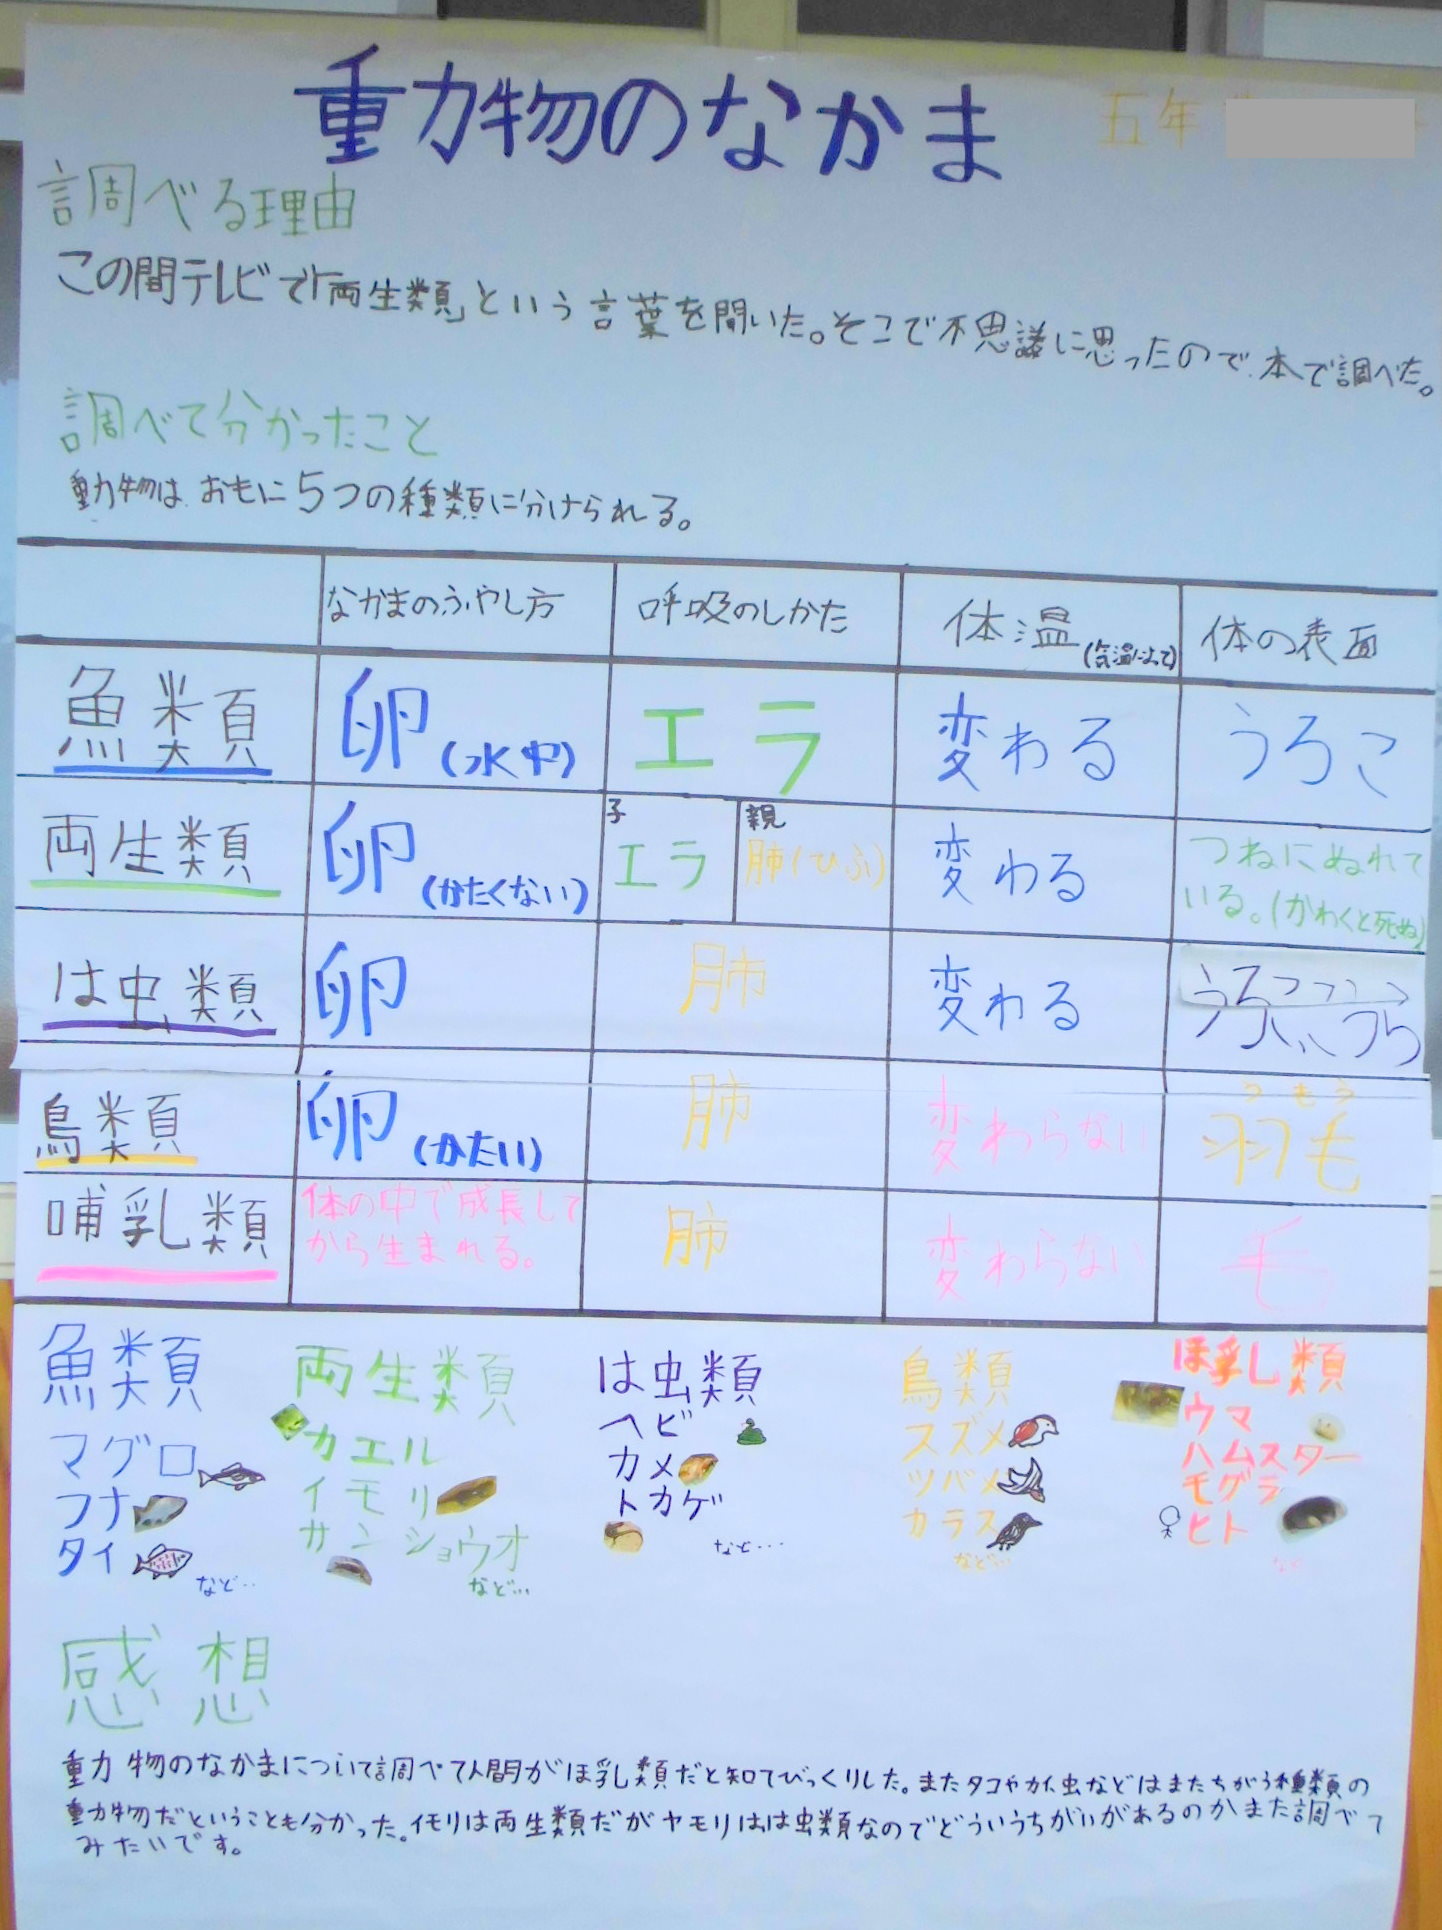 動物のなかま
五年
調べる理由
この間テレビで「両生類」という言葉を聞いた。そこで不思議に思ったので、本で調べた。
調べて分かったこと
動物は、おもに5つの種類に分けられる。
なかまのふやし方 呼吸のしかた 体温(気温によって) 体の表面
魚類 卵(水中) エラ 変わる うろこ
両生類 卵(かたくない) 子 エラ 親 肺(ひふ) 変わる つねにぬれて
いる。(かわくと死ぬ)
は虫類 卵 肺 変わる
うもう
鳥類 卵(かたい) 肺 変わらない 羽毛
哺乳類 体の中で成長して
から生まれる。 肺 変わらない 毛
魚類
マグロ
フナ
タイ
など…
両生類
カエル
イモリ
サンショウオ
など…
は虫類
ヘビ
カメ
トカゲ
など…
鳥類
スズメ
ツバメ
カラス
など…
ほ乳類
ウマ
ハムスター
モグラ
ヒト
など
感想
動物のなかまについて調べて人間がほ乳類だと知てびっくりした。またタコやカイ、虫などはまたちがう種類の
動物だということも分かった。イモリは両生類だがヤモリはは虫類なのでどういうちがいがあるのかまた調べて
みたいです。